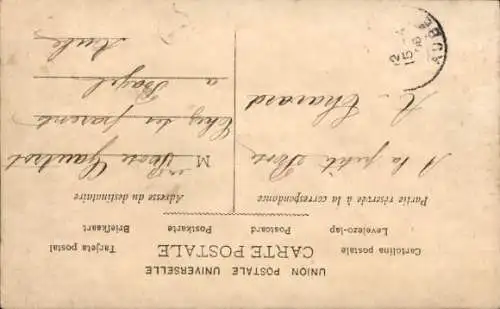 UNION POSTALE UNIVERSELLE
CARTE POSTALE
Cartolina postale Postcard Tarjeta postal
Levelezo-lap Postkarte Briefkaart
Partie réservée à la correspondance
Adresse du destinataire
A la petite Rose
A. Chavard
Melle Rose Gautrot
Chez ses parents
a Bagel
Aube
AUBE